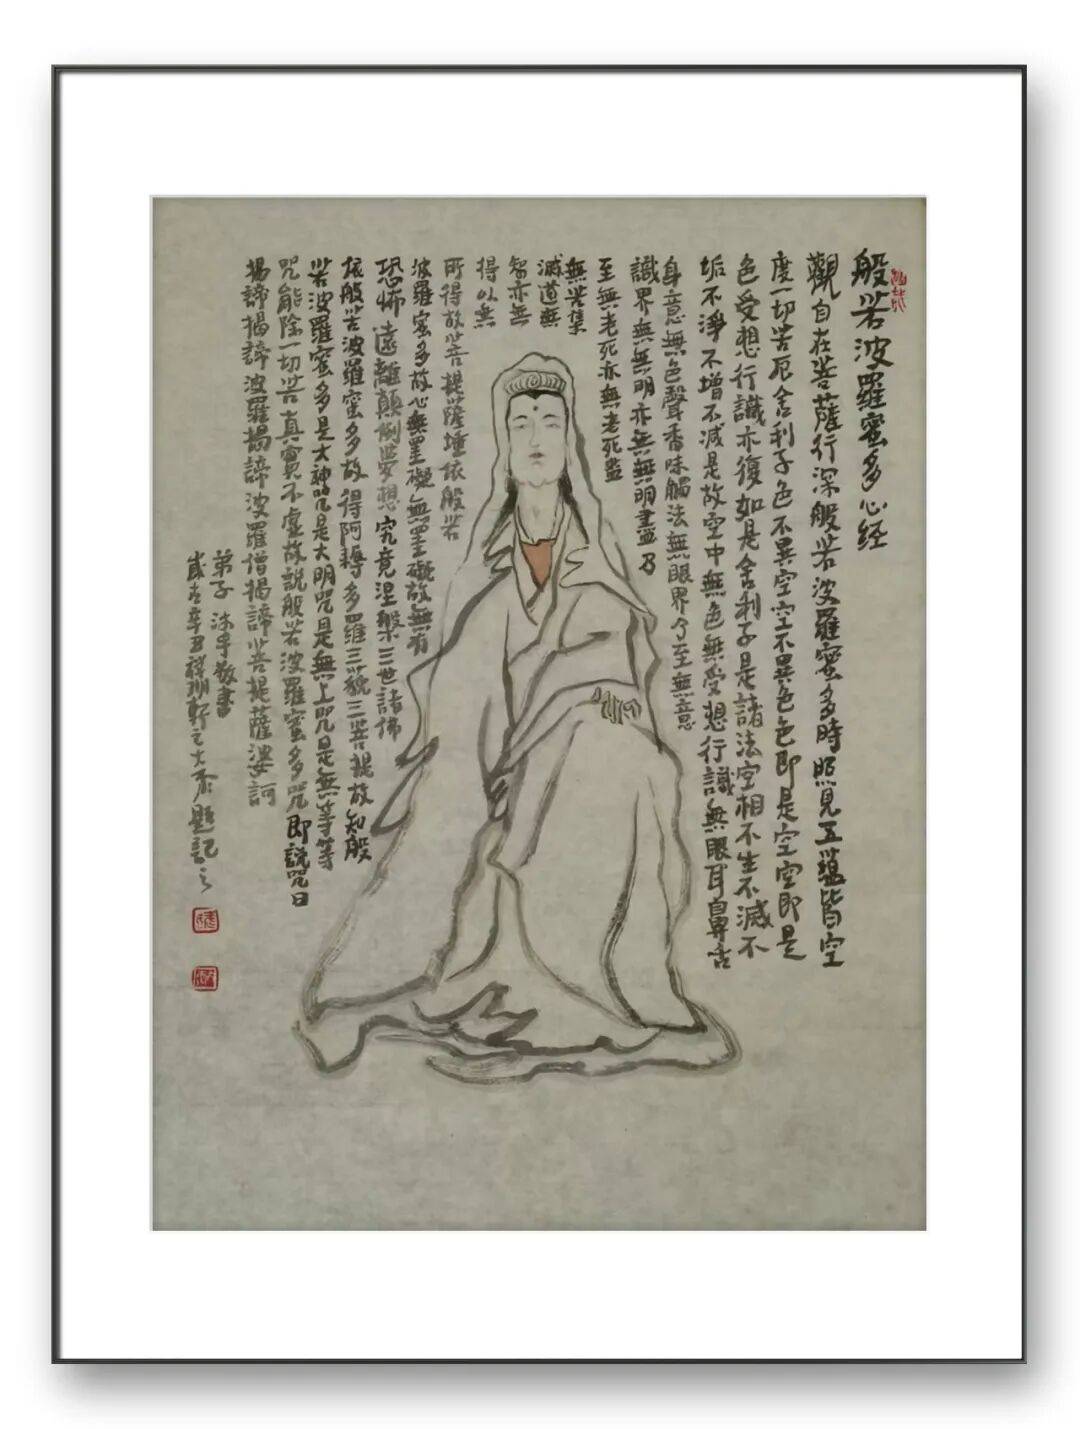 般若波羅蜜多心经
觀自在菩薩行深般若波羅蜜多時照見五蘊皆空
度一切苦厄舍利子色不異空空不異色色即是空空即是
色受想行識亦復如是舍利子是諸法空相不生不滅不
垢不淨不增不减是故空中無色無受想行識無眼耳鼻舌
身意無色聲香味觸法無眼界乃至無意
識界無無明亦無無明盡乃
至無老死亦無老死盡
無苦集
滅道無
智亦無
得以無
所得故菩提薩埵依般若
波羅蜜多故心無罣礙無罣礙故無有
恐怖遠離顛倒夢想究竟涅槃三世諸佛
依般若波羅蜜多故得阿耨多羅三藐三菩提故知般
若波羅蜜多是大神咒是大明咒是無上咒是無等等
咒能除一切苦真實不虛故說般若波羅蜜多咒即說咒曰
揭諦揭諦波羅揭諦波羅僧揭諦菩提薩婆訶
弟子 敬書
歲在辛丑 軒之大 題記之